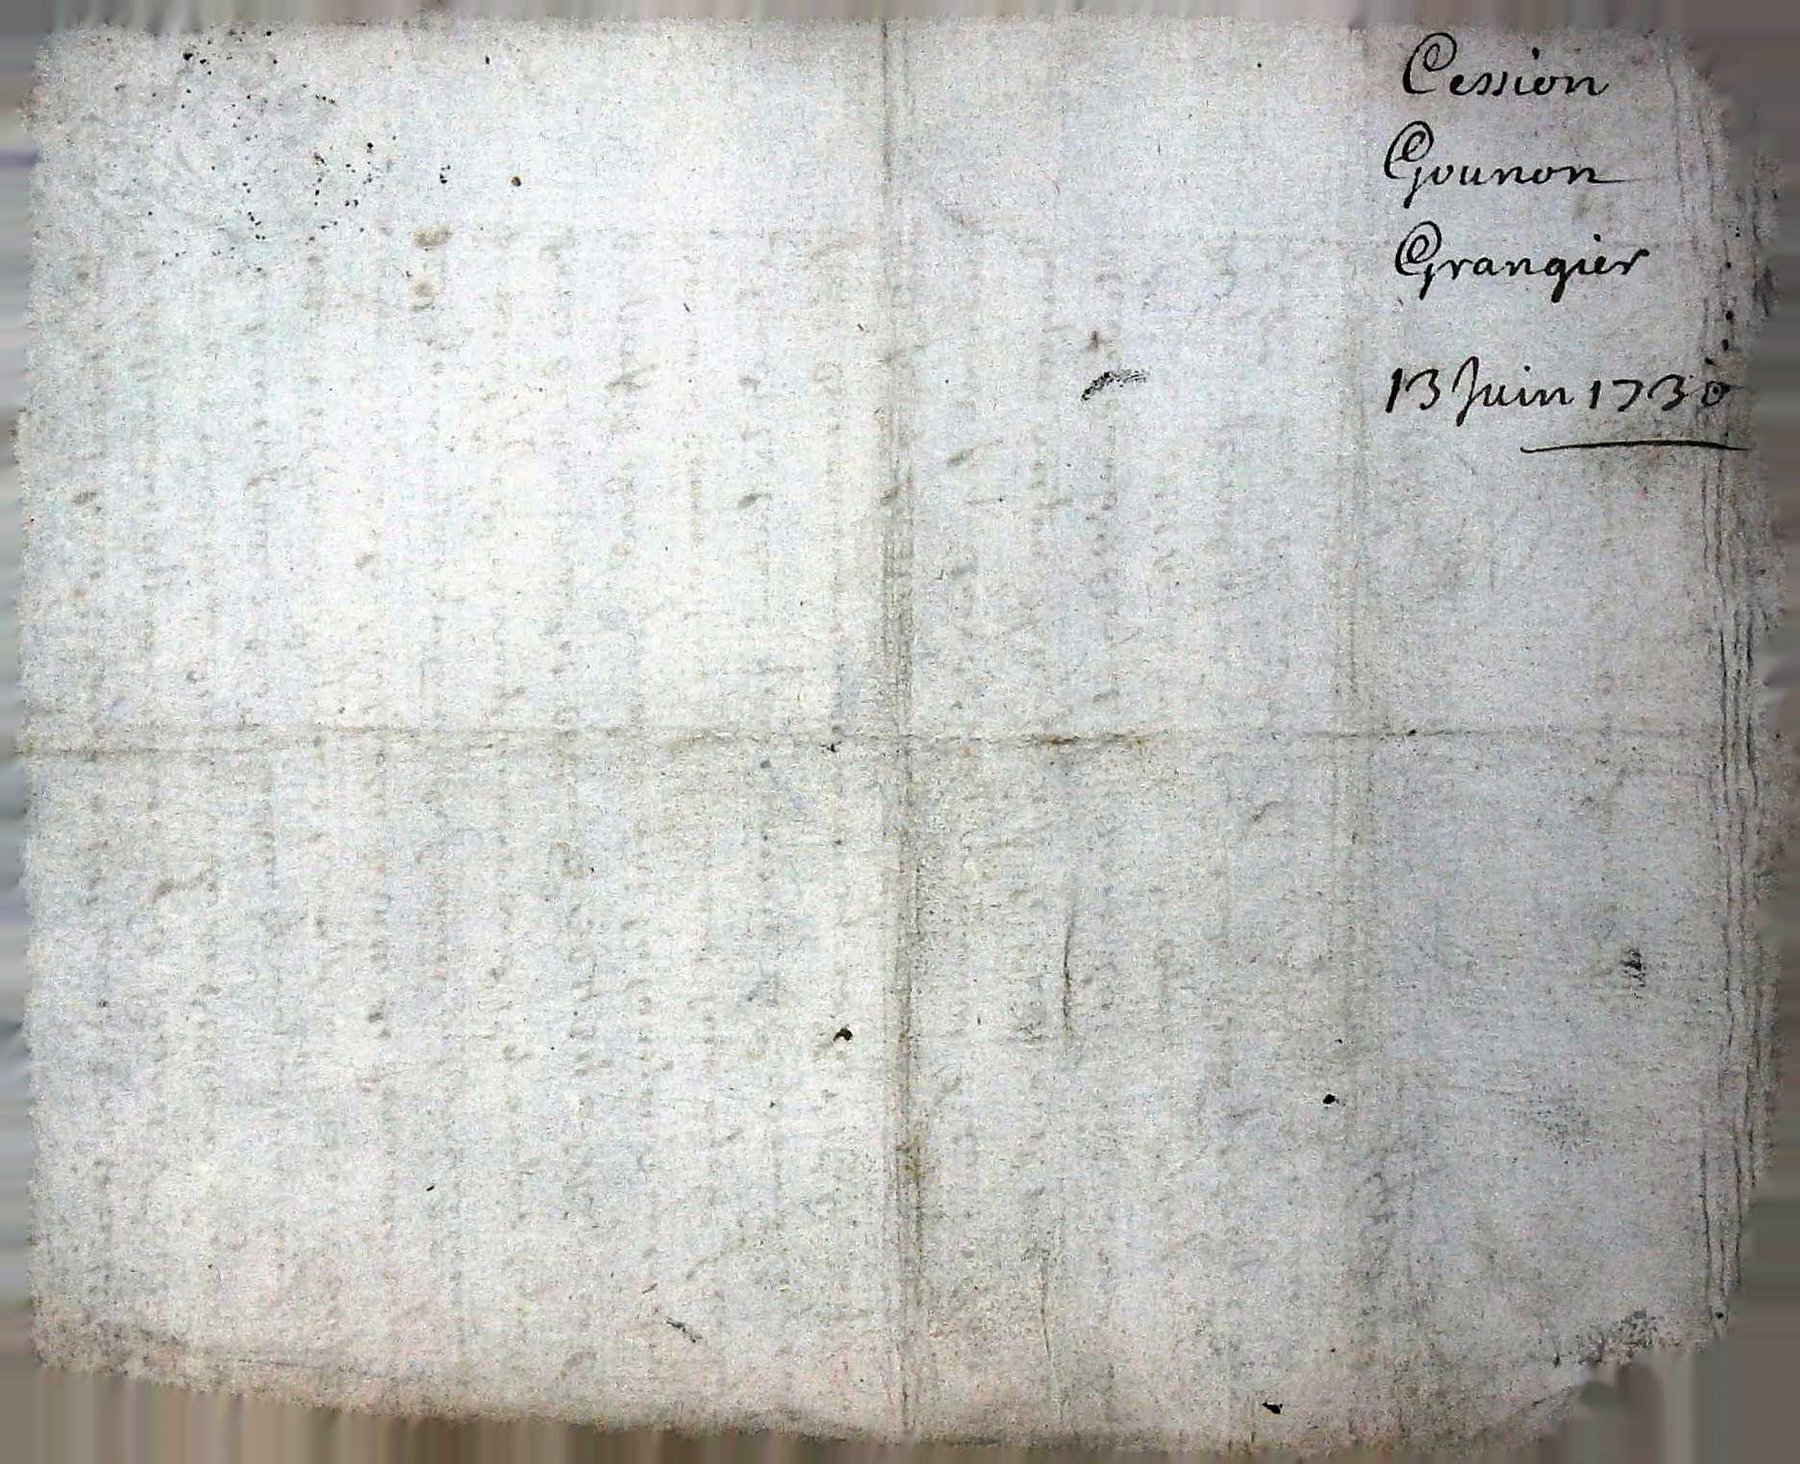 Cession
Gounon
Grangier
13 Juin 1730